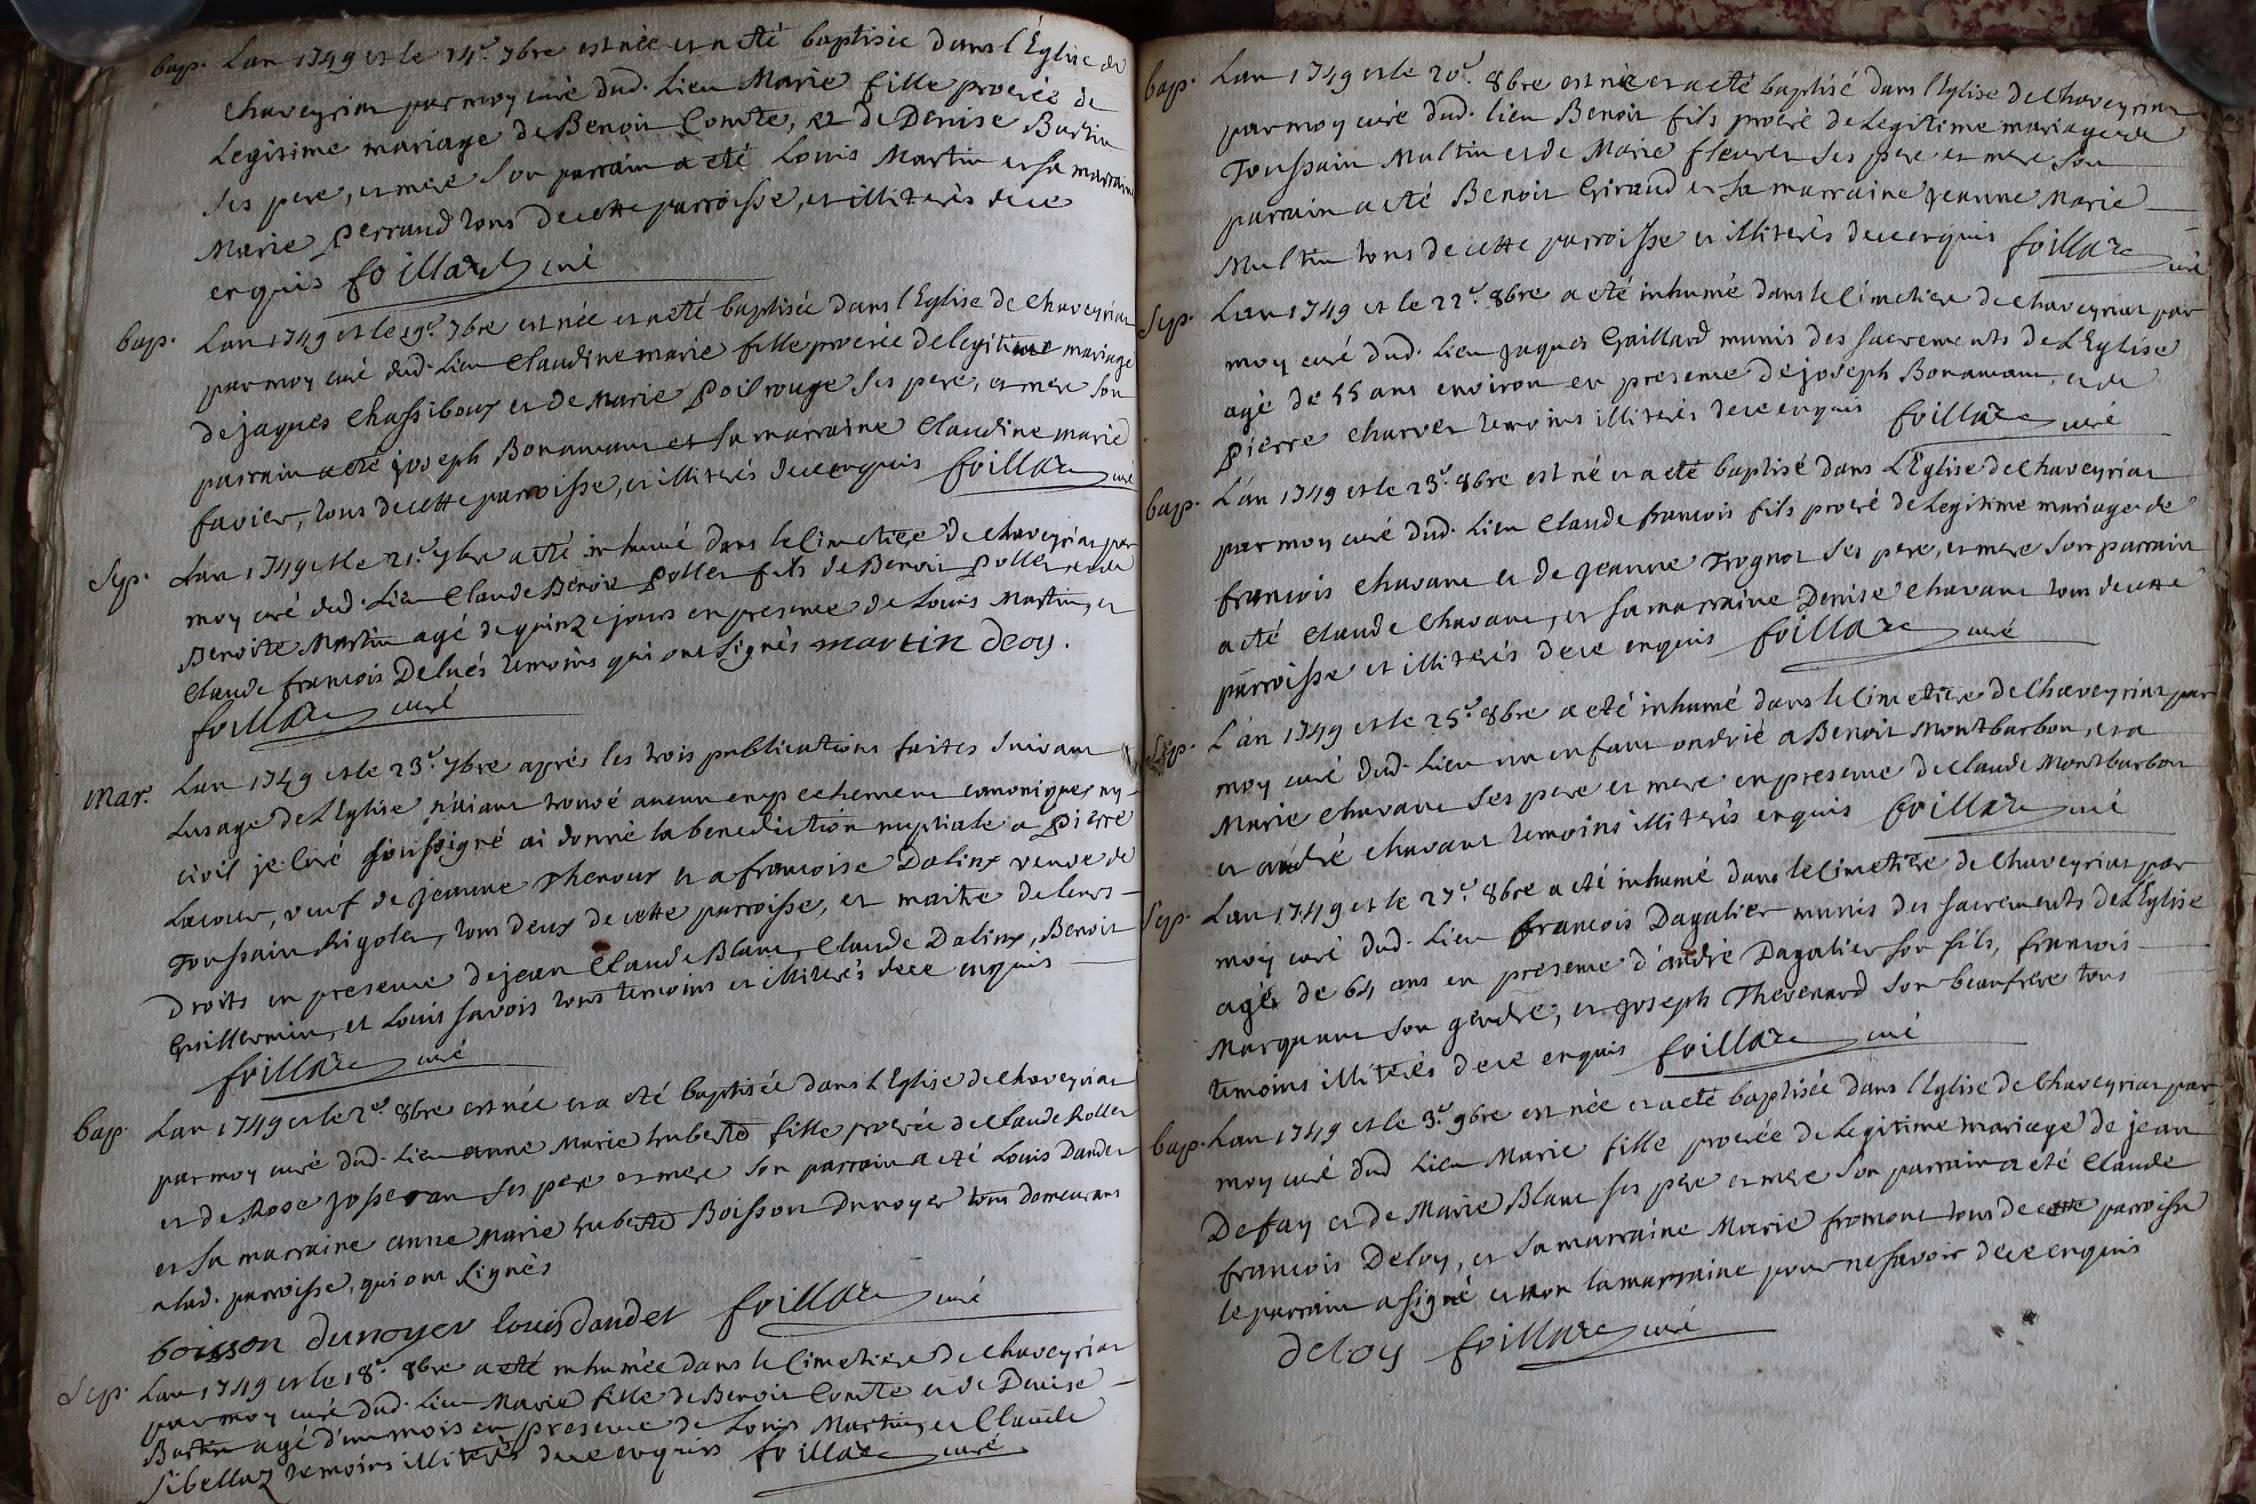 bap. Lan 1749 et le 14e. 7bre est née et a eté baptisée dans l'Église de
Chaveyriat par moy curé dud. Lieu Marie fille procrée de
Legitime mariage de Benoit Comte, et de Denise Burtin
ses pere, et mere son parrain a eté Louis Martin et sa marraine
Marie Perraud tous de cette parroisse, et illiterés de ce
enquis foillard curé
bap. Lan 1749 et le 19e. 7bre est née et a eté baptisée dans l'Eglise de Chaveyriat
par moy curé dud. Lieu Claudine marie fille procrée de legitime mariage
de jaques Chassiboux et de Marie Poilrouge ses pere, et mere son
parrain a eté joseph Bonamant et sa marraine Claudine marie
favier, tous de cette parroisse, et illiterés de ce enquis foillard curé
Sep. Lan 1749 et le 21e. 7bre a eté inhumé dans le Cimetiere de Chaveyriat par
moy curé dud. Lieu Claude Benoit Pollet fils de Benoit Pollet, et de
Benoite Martin agé de quinze jours en presence de Louis Martin, et
Claude francois Delués temoins qui ont signés martin deloy.
foillard curé
Mar. Lan 1749 et le 23e. 7bre aprés les trois publications faites suivant
Lusage de L'Eglise n'aiant trouvé aucun empechement canonique, ny
civil je Curé soussigné ai donné la benediction nuptiale a Pierre
Lacour, veuf de jeanne Thenoux et a francoise Dalinx veuve de
Toussain Rigolet, tous deux de cette parroisse, et maitre de leurs
Droits en presence de jean Claude Blanc, Claude Dalinx, Benoit
Guillermin, et Louis Savois tous temoins et illiterés de ce enquis
foillard curé
bap. Lan 1749 et le 2e. 8bre est née et a eté baptisée dans l'Eglise de Chaveyriat
par moy curé dud. Lieu anne Marie huberte fille procrée de Claude Rollet
et de Rose josseran ses pere et mere son parrain a eté Louis Dandet
et sa marraine anne Marie huberte Boisson Dunoyer tous demeurans
a lad. parroisse, qui ont signés
boisson dunoyer louis dandet foillard curé
Sep. Lan 1749 et le 18e. 8bre a eté inhumée dans le Cimetiere de Chaveyriat
par moy curé dud. Lieu Marie fille de Benoit Comte et de Denise
Burtin agé d'un mois en presence de Louis Martin, et Claude
Sibellaz temoins illiterés de ce enquis foillard curé
bap. Lan 1749 et le 20e. 8bre est né et a eté baptisé dans l'Eglise de Chaveyriat
par moy curé dud. lieu Benoit fils procré de Legitime mariage de
Toussain Multin et de Marie fleuret ses pere et mere son
parrain a eté Benoit Giraud et sa marraine jeanne Marie
Multin tous de cette parroisse et illiterés de ce enquis foillard curé
Sep. Lan 1749 et le 22e. 8bre a eté inhumé dans le Cimetiere de Chaveyriat par
moy curé dud. Lieu jaques Gaillard munis des sacrements de L'Eglise
agé de 55 ans environ en presence de joseph Bonamant, et de
pierre Charvet temoins illiterés de ce enquis foillard curé
bap. L'an 1749 et le 23e. 8bre est né et a eté baptisé dans L'Eglise de Chaveyriat
par moy curé dud. Lieu Claude francois fils procré de Legitime mariage de
francois Chavant et de jeanne Trognot ses pere, et mere son parrain
a eté Claude Chavant, et sa marraine Denise Chavant tous de cette
parroisse et illiterés de ce enquis foillard curé
Sep. L'an 1749 et le 25e. 8bre a eté inhumé dans le Cimetiere de Chaveyriat par
moy curé dud. Lieu un enfant ondoié a Benoit Montbarbon, et a
Marie Chavant ses pere et mere en presence de Claude Montbarbon
et andré Chavant temoins illiterés enquis foillard curé
Sep. Lan 1749 et le 27e. 8bre a eté inhumé dans le Cimetiere de Chaveyriat par
moy curé dud. Lieu francois Dagalier munis des sacrements de L'Eglise
agé de 64 ans en presence d'andré Dagalier son fils, francois
Marquant son gendre, et joseph Thevenard son beaufrere tous
temoins illiterés de ce enquis foillard curé
bap. Lan 1749 et le 3e. 9bre est née et a eté baptisée dans l'Eglise de Chaveyriat par
moy curé dud Lieu Marie fille procrée de Legitime mariage de jean
Defay et de Marie Blanc ses pere et mere son parrain a eté Claude
francois Deloy, et sa marraine Marie fromont tous de cette parroisse
le parrain a signé et non la marraine pour ne savoir de ce enquis
deloy foillard curé